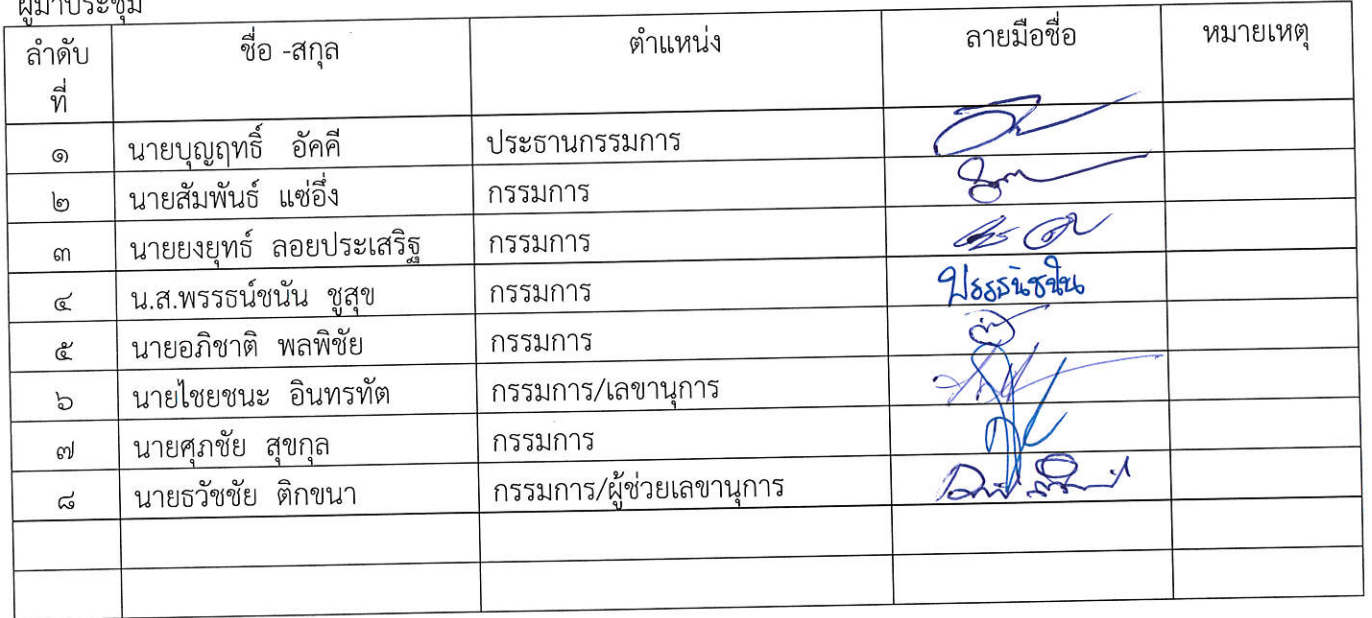 ผู้มาประชุม
ลำดับที่ ชื่อ -สกุล ตำแหน่ง ลายมือชื่อ หมายเหตุ
๑ นายบุญฤทธิ์ อัคคี ประธานกรรมการ
๒ นายสัมพันธ์ แซ่อึ่ง กรรมการ
๓ นายยงยุทธ์ ลอยประเสริฐ กรรมการ
๔ น.ส.พรรธน์ชนัน ชูสุข กรรมการ พรรธน์ชนัน
๕ นายอภิชาติ พลพิชัย กรรมการ
๖ นายไชยชนะ อินทรทัต กรรมการ/เลขานุการ
๗ นายศุภชัย สุขกุล กรรมการ
๘ นายธวัชชัย ติกขนา กรรมการ/ผู้ช่วยเลขานุการ